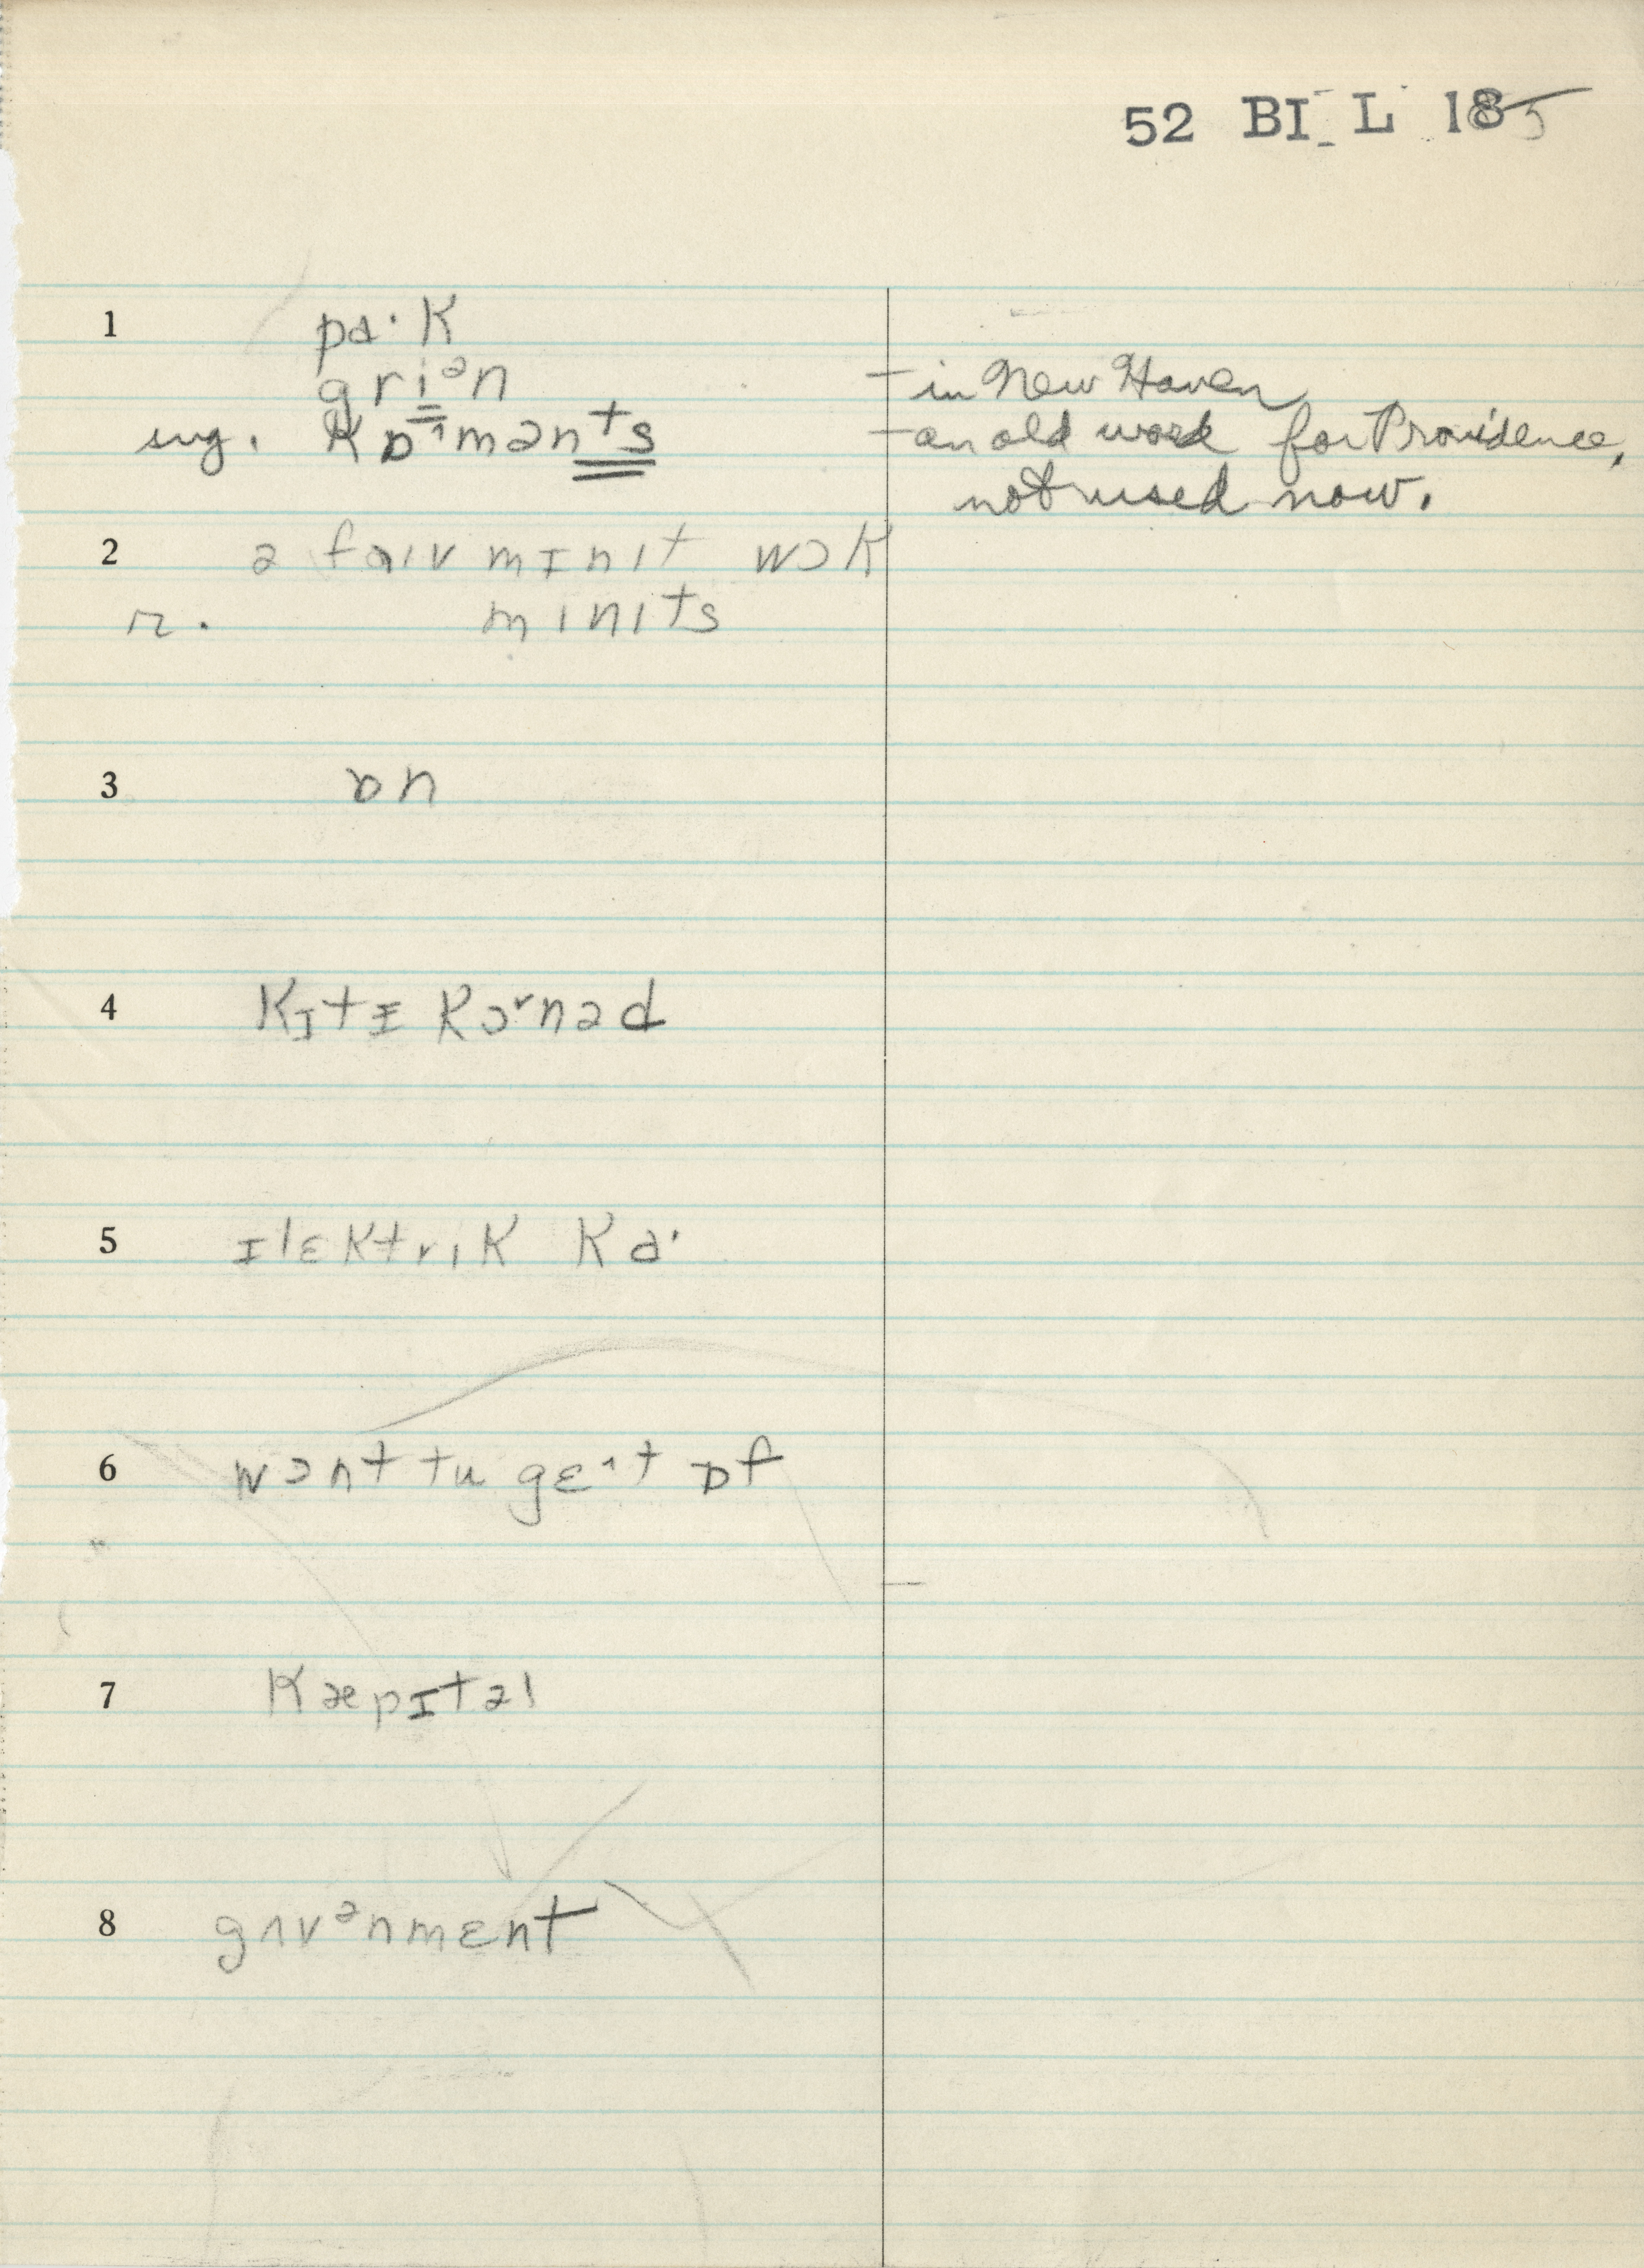 52 BI L 185
1 pɑ·k
gri̳ᵊn – in New Haven
sug. kɒˆmən̳t̳s̳ – an old word for Providence,
not used now.
2 ə faɪv mɪnɪt wɔk
r. mɪnɪts
3 ɒn
4 kɪtɪ kɔʳnəd
5 ɪlɛktrɪk ka·
6 wɔnt tu gɛˆt ɒf
7 kæpɪtəl
8 gʌvᵊnmɛnt